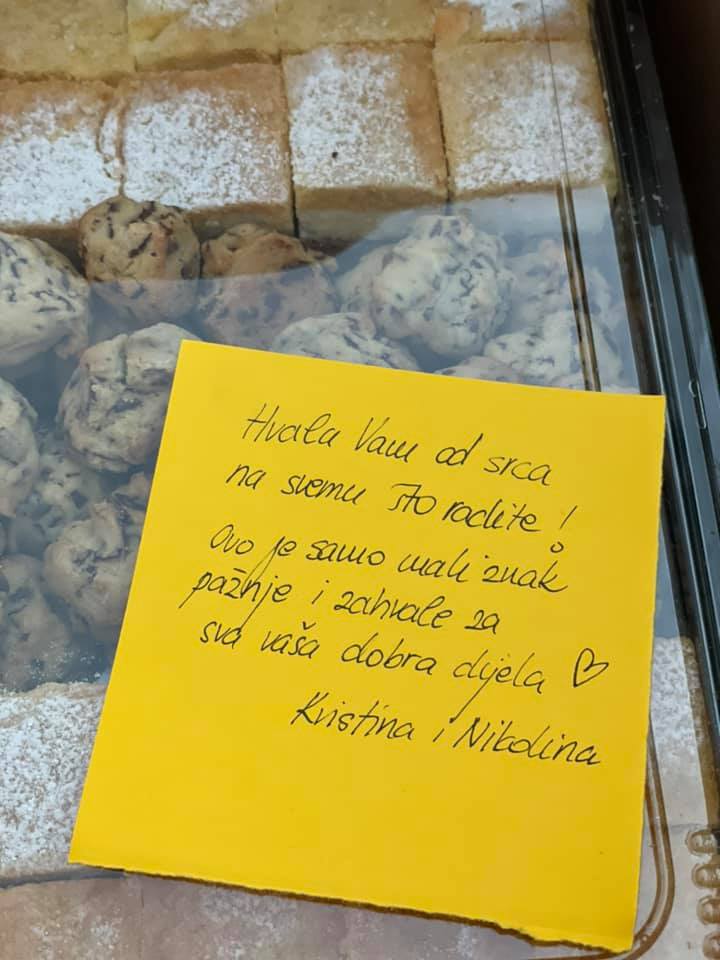 Hvala Vam od srca
na svemu što radite!
Ovo je samo mali znak
pažnje i zahvale za
sva vaša dobra dijela ♡
Kristina i Nikolina